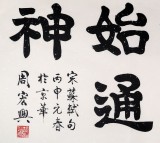 始通
神
宋苏轼句
丙申元春
於京華
周宏興